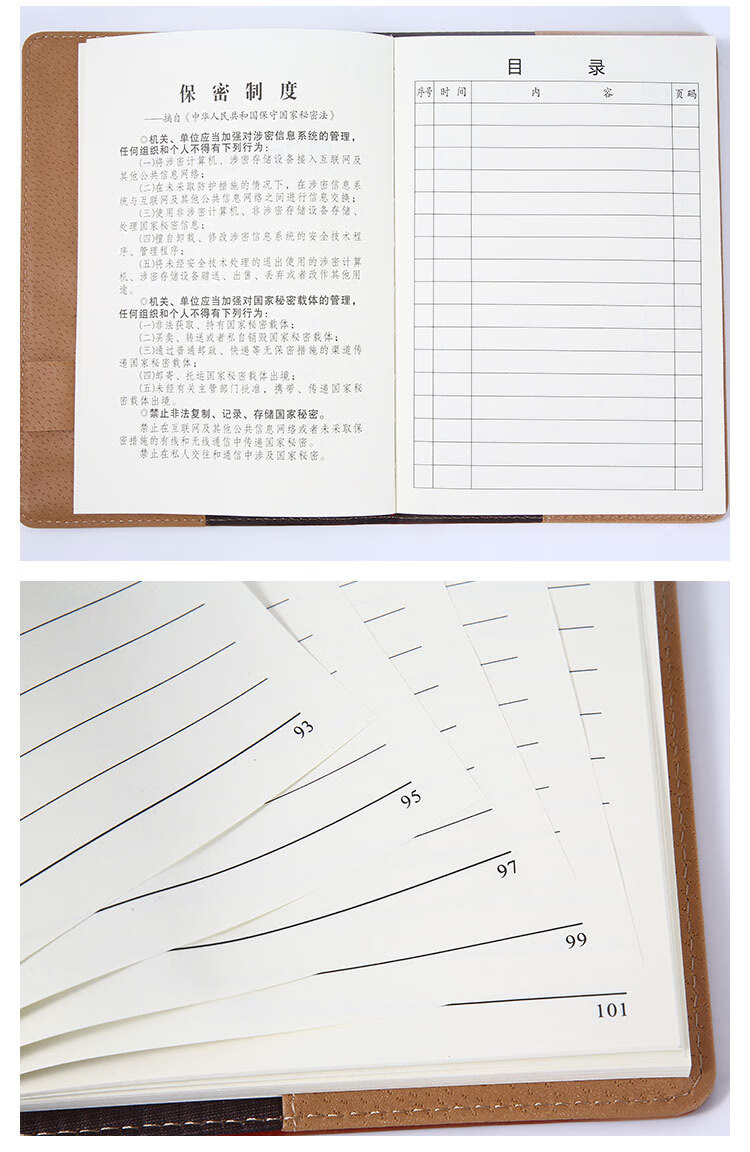 保密制度
——摘自《中华人民共和国保守国家秘密法》
◎机关、单位应当加强对涉密信息系统的管理，
任何组织和个人不得有下列行为：
(一)将涉密计算机、涉密存储设备接入互联网及
其他公共信息网络；
(二)在未采取防护措施的情况下，在涉密信息系
统与互联网及其他公共信息网络之间进行信息交换；
(三)使用非涉密计算机、非涉密存储设备存储、
处理国家秘密信息；
(四)擅自卸载、修改涉密信息系统的安全技术程
序、管理程序；
(五)将未经安全技术处理的退出使用的涉密计算
机、涉密存储设备赠送、出售、丢弃或者改作其他用
途。
◎机关、单位应当加强对国家秘密载体的管理，
任何组织和个人不得有下列行为：
(一)非法获取、持有国家秘密载体；
(二)买卖、转送或者私自销毁国家秘密载体；
(三)通过普通邮政、快递等无保密措施的渠道传
递国家秘密载体；
(四)邮寄、托运国家秘密载体出境；
(五)未经有关主管部门批准，携带、传递国家秘
密载体出境。
◎禁止非法复制、记录、存储国家秘密。
禁止在互联网及其他公共信息网络或者未采取保
密措施的有线和无线通信中传递国家秘密。
禁止在私人交往和通信中涉及国家秘密。
目 录
序号 时间 内容 页码
93
95
97
99
101